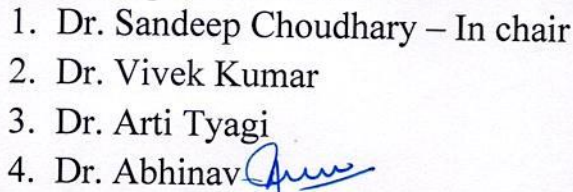 1. Dr. Sandeep Choudhary – In chair
2. Dr. Vivek Kumar
3. Dr. Arti Tyagi
4. Dr. Abhinav